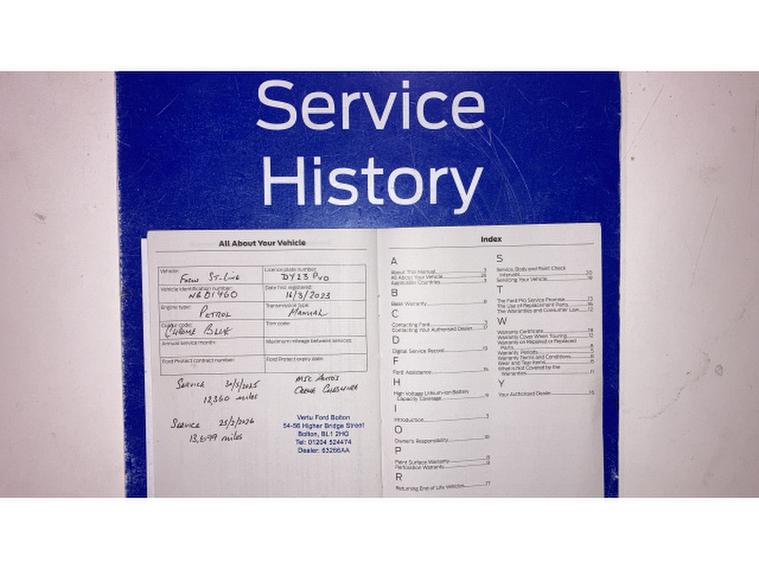 Service
History
All About Your Vehicle
Vehicle:
Licence plate number:
DY23 PVO
Vehicle identification number:
Date first registered:
NGD1460
16/3/2023
Engine type:
PETROL
Transmission type:
MANUAL
Colour code:
CHROME BLUE
Trim code:
Annual service month:
Maximum mileage between services:
Ford Protect contract number:
Ford Protect expiry date:
SERVICE
12,360 miles
MSC AUTOS
CREWE CHESHIRE
SERVICE 25/2/2026
13,699 miles
Vertu Ford Bolton
54-56 Higher Bridge Street
Bolton, BL1 2HG
Tel: 01204 524474
Dealer: 63266AA
Index
A
About This Manual
All About Your Vehicle
Applicable Countries
B
Base Warranty
C
Contacting Ford
Contacting Your Authorised Dealer
D
Digital Service Record
F
Ford Assistance
H
High Voltage Lithium-ion Battery
Capacity Coverage
I
Introduction
O
Owner's Responsibility
P
Paint Surface Warranty
Perforation Warranty
R
Returning End of Life Vehicles
S
Service, Body and Paint Check
Intervals
Servicing Your Vehicle
T
The Ford Pro Service Promise
The Use of Replacement Parts
The Warranties and Consumer Law
W
Warranty Certificate
Warranty Cover When Touring
Warranty on Repaired or Replaced
Parts
Warranty Periods
Warranty Terms and Conditions
Wear and Tear Items
What is Not Covered by the
Warranties
Y
Your Authorised Dealer